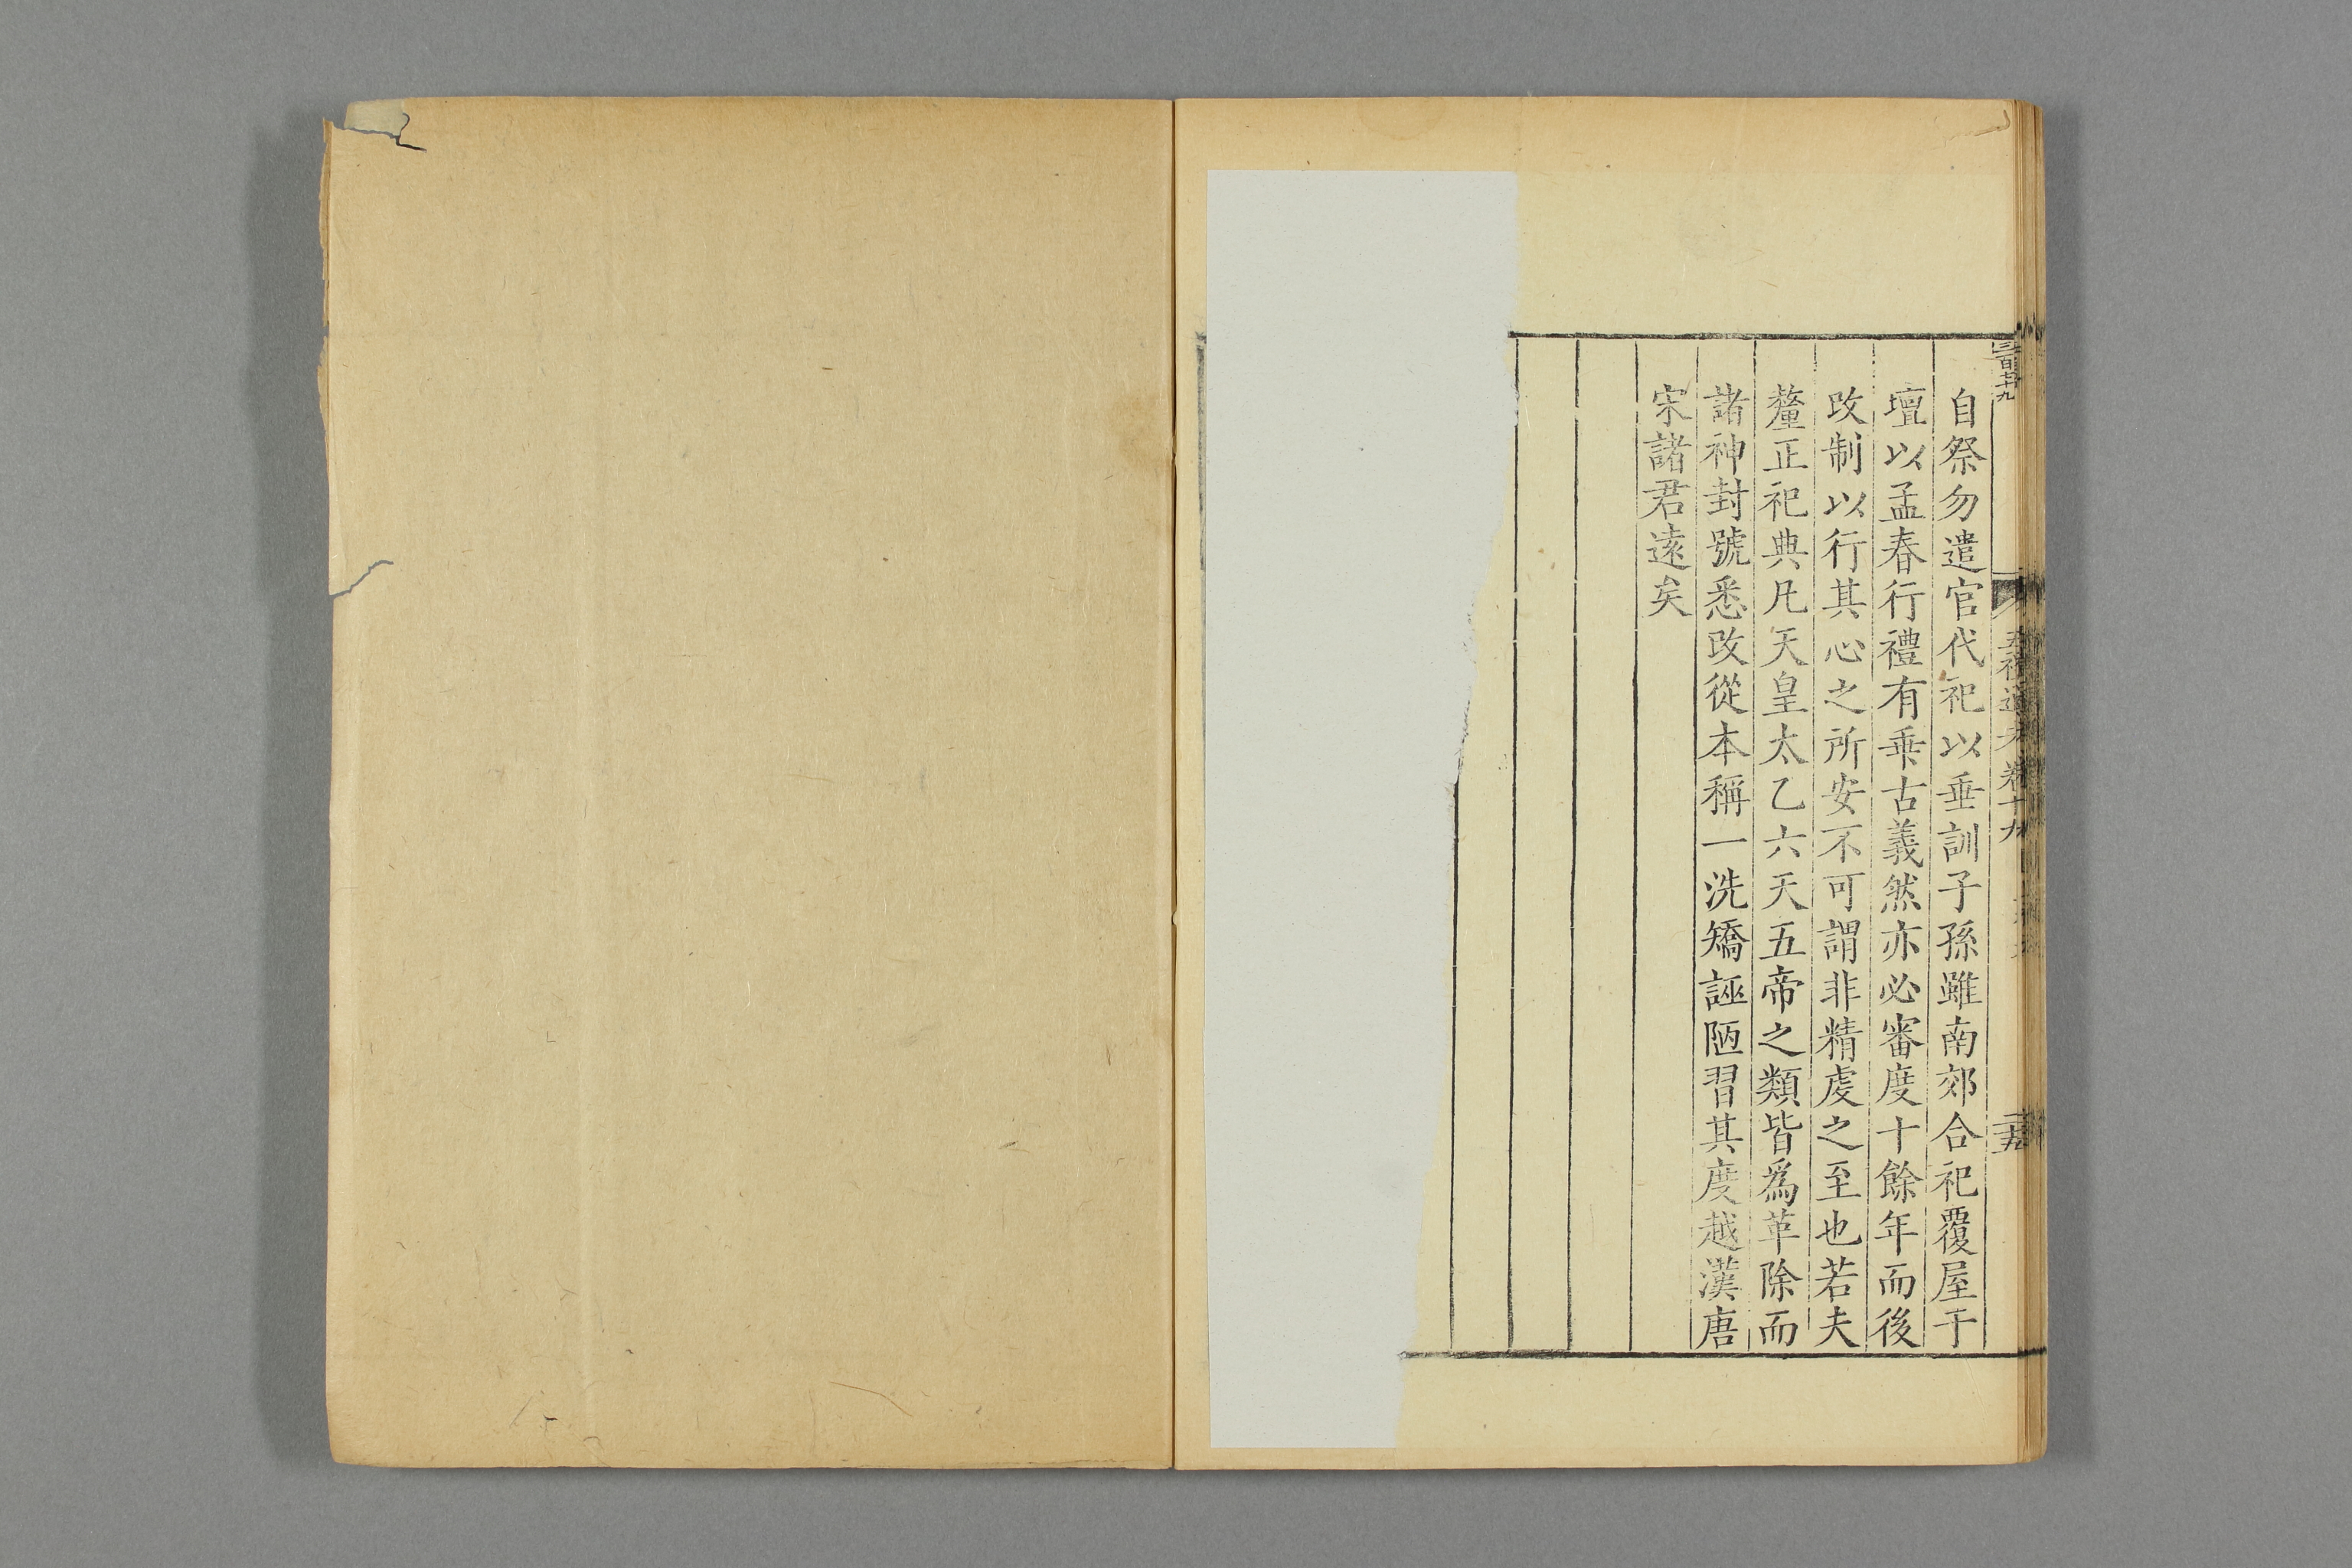 自祭勿遣官代祀以垂訓子孫雖南郊合祀覆屋于
壇以孟春行禮有乖古義然亦必審度十餘年而後
改制以行其心之所安不可謂非精虔之至也若夫
釐正祀典凡天皇太乙六天五帝之類皆爲革除而
諸神封號悉改從本稱一洗矯誣陋習其度越漢唐
宋諸君遠矣